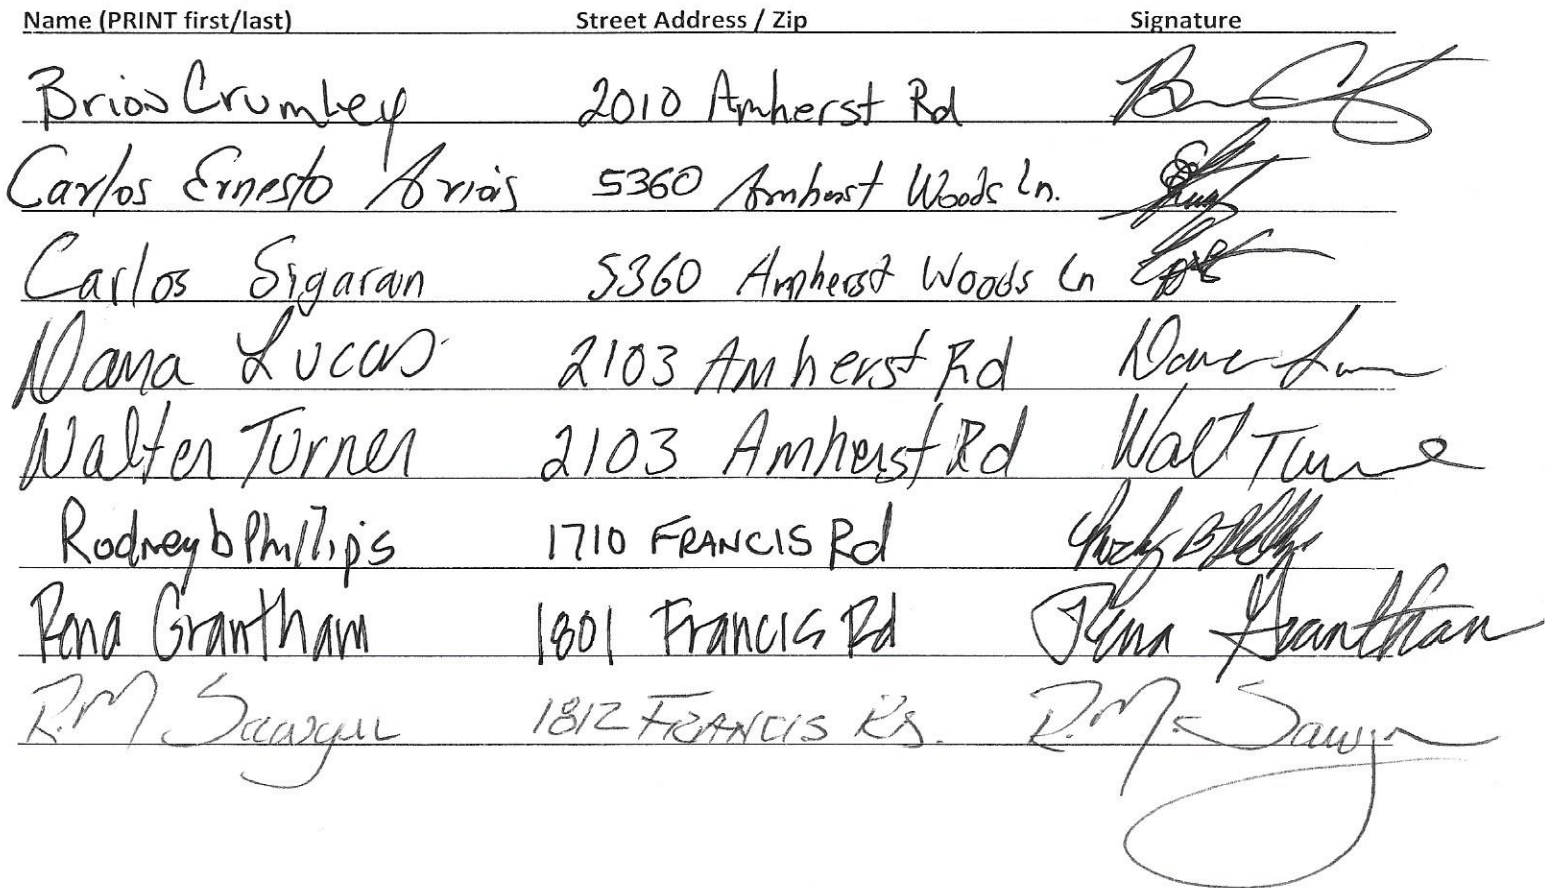 Name (PRINT first/last) Street Address / Zip Signature
Brion Crumley 2010 Amherst Rd
Carlos Ernesto Arias 5360 Amherst Woods Ln.
Carlos Sigaran 5360 Amherst Woods Ln
Dana Lucas 2103 Amherst Rd Dana
Walter Turner 2103 Amherst Rd Walt Turner
Rodney b Phillips 1710 FRANCIS Rd
Rena Grantham 1801 Francis Rd Rena Grantham
R.M Sawyer 1812 FRANCIS Rd. R.M. Sawyer